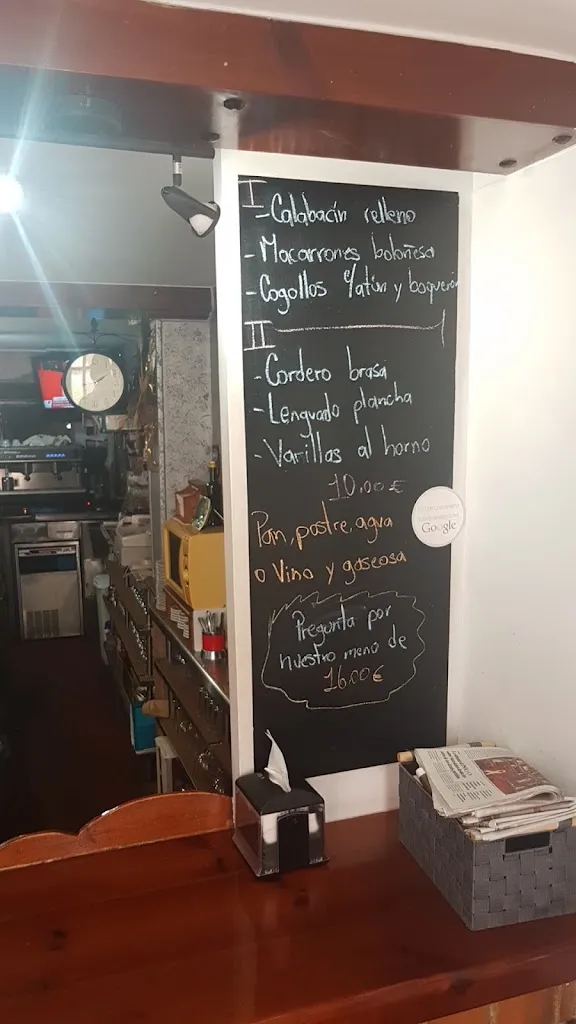 I
- Calabacín relleno
- Macarrones boloñesa
- Cogollos c/atún y boquerón
II
- Cordero brasa
- Lenguado plancha
- Varillas al horno
10.00€
Pan, postre, agua
o Vino y gaseosa
Google
Pregunta por
nuestro menú de
16.00€